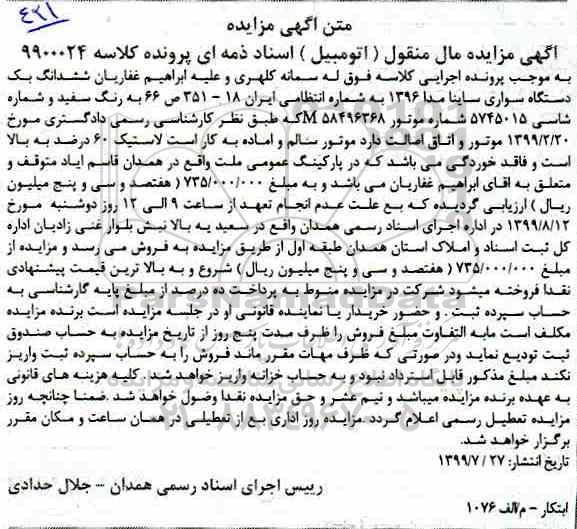 ۴۲۱
متن اگهی مزایده
اگهی مزایده مال منقول ( اتومبیل ) اسناد ذمه ای پرونده کلاسه ۹۹۰۰۰۲۴
به موجب پرونده اجرایی کلاسه فوق له سمانه کلهری و علیه ابراهیم غفاریان ششدانگ یک
دستگاه سواری ساینا مدا ۱۳۹۶ به شماره انتظامی ایران ۱۸ - ۳۵۱ ص ۶۶ به رنگ سفید و شماره
شاسی ۵۷۴۵۰۱۵ شماره موتور M۵۸۴۹۶۳۶۸ که طبق نظر کارشناسی رسمی دادگستری مورخ
۱۳۹۹/۲/۲۰ موتور و اتاق اصالت دارد موتور سالم و اماده به کار است لاستیک ۶۰ درصد به بالا
است و فاقد خوردگی می باشد که در پارکینگ عمومی ملت واقع در همدان قاسم ایاد متوقف و
متعلق به اقای ابراهیم غفاریان می باشد و به مبلغ ۷۳۵/۰۰۰/۰۰۰ ( هفتصد و سی و پنج میلیون
ریال ) ارزیابی گردیده که بع علت عدم انجام تعهد از ساعت ۹ الی ۱۲ روز دوشنبه مورخ
۱۳۹۹/۸/۱۲ در اداره اجرای اسناد رسمی همدان واقع در سعید یه بالا نبش بلوار غنی زادیان اداره
کل ثبت اسناد و املاک استان همدان طبقه اول از طریق مزایده به فروش می رسد و مزایده از
مبلغ ۷۳۵/۰۰۰/۰۰۰ ( هفتصد و سی و پنج میلیون ریال ) شروع و به بالا ترین قیمت پیشنهادی
نقدا فروخته میشود شرکت در مزایده منوط به پرداخت ده درصد از مبلغ پایه گارشناسی به
حساب سپرده ثبت . و حضور خریدار یا نماینده قانونی او در جلسه مزایده است برنده مزایده
مکلف است مابه التفاوت مبلغ فروش را ظرف مدت پنج روز از تاریخ مزایده به حساب صندوق
ثبت تودیع نماید ودر صورتی که ظرف مهات مقرر ماند فروش را به حساب سپرده ثبت واریز
نکند مبلغ مذکور قابل استرداد نبود و به حساب خزانه واریز خواهد شد. کلیه هزینه های قانونی
به عهده برنده مزایده میباشد و نیم عشر و حق مزایده نقدا وصول خواهد شد .ضمنا چنانچه روز
مزایده تعطیل رسمی اعلام گردد .مزایده روز اداری بع از تعطیلی در همان ساعت و مکان مقرر
برگزار خواهد شد.
تاریخ انتشار: ۲۷ / ۱۳۹۹/۷
رییس اجرای اسناد رسمی همدان - جلال حدادی
ابتکار - م/الف ۱۰۷۶
ParsNamadData
۰۲۱-۸۸۳۴۹۶۷۰-۵